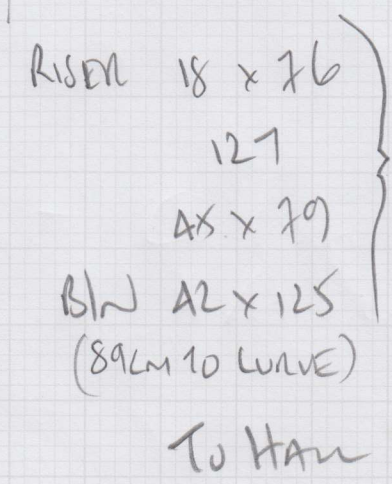 RISER 18 x 76
127
45 x 79
BIN 42 x 125
(89CM TO CURVE)
TO HALL